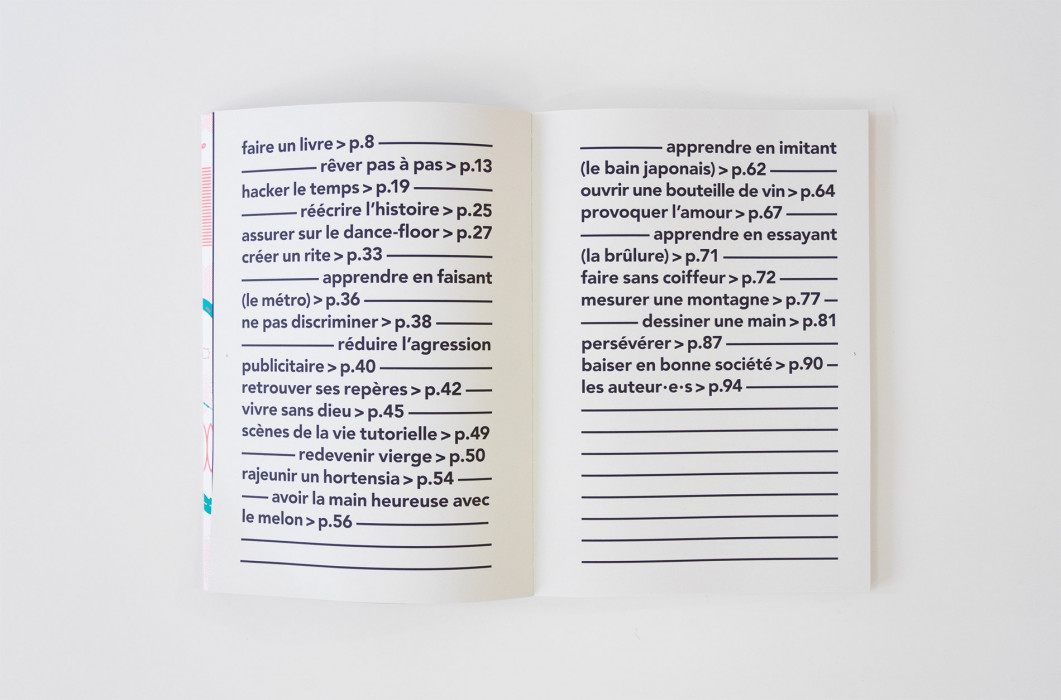 faire un livre > p.8
rêver pas à pas > p.13
hacker le temps > p.19
réécrire l’histoire > p.25
assurer sur le dance-floor > p.27
créer un rite > p.33
apprendre en faisant
(le métro) > p.36
ne pas discriminer > p.38
réduire l’agression
publicitaire > p.40
retrouver ses repères > p.42
vivre sans dieu > p.45
scènes de la vie tutorielle > p.49
redevenir vierge > p.50
rajeunir un hortensia > p.54
avoir la main heureuse avec
le melon > p.56
apprendre en imitant
(le bain japonais) > p.62
ouvrir une bouteille de vin > p.64
provoquer l’amour > p.67
apprendre en essayant
(la brûlure) > p.71
faire sans coiffeur > p.72
mesurer une montagne > p.77
dessiner une main > p.81
persévérer > p.87
baiser en bonne société > p.90
les auteur·e·s > p.94